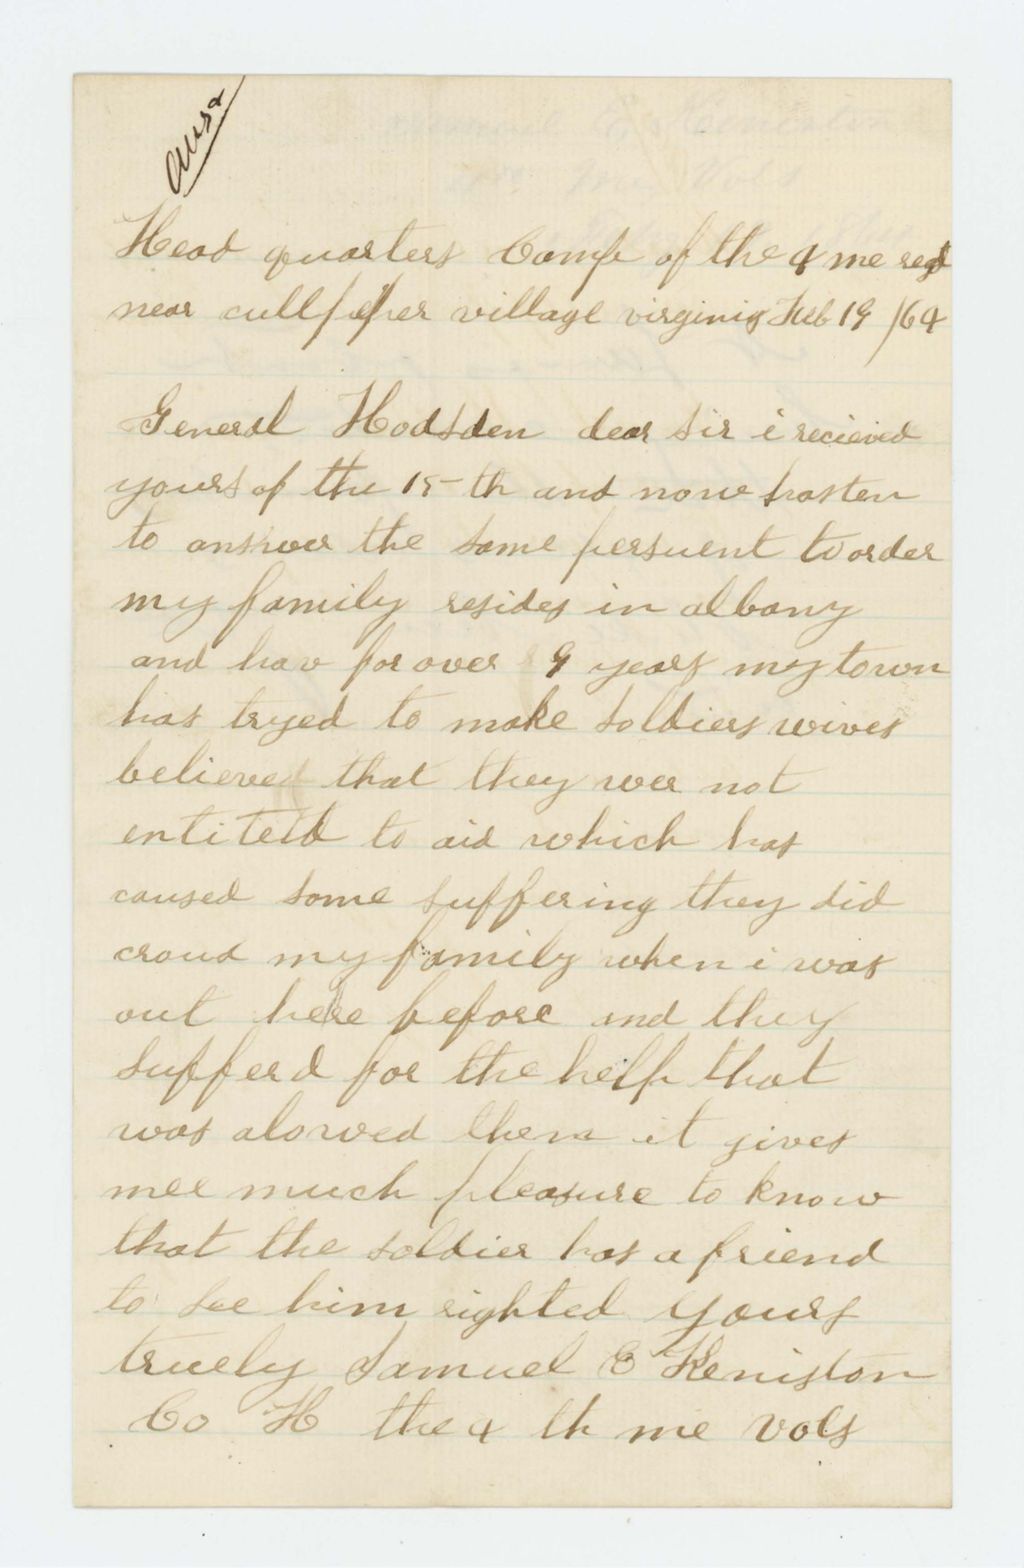 ansd
Head quarters Camp of the 4 me regt
near cullpeper village virginia Feb 19 /64
General Hodsden dear sir i recieved
yours of the 15-th and now hasten
to answer the same persuent to order
my family resides in albany
and hav for over 9 years my town
has tryed to make soldiers wives
believe that they wer not
entiteld to aid which has
caused some suffering they did
croud my family when i was
out here before and they
sufferd for the help that
was alowed them it gives
mee much pleasure to know
that the soldier has a friend
to see him righted yours
truely Samuel E Keniston
Co H the 4 th me vols